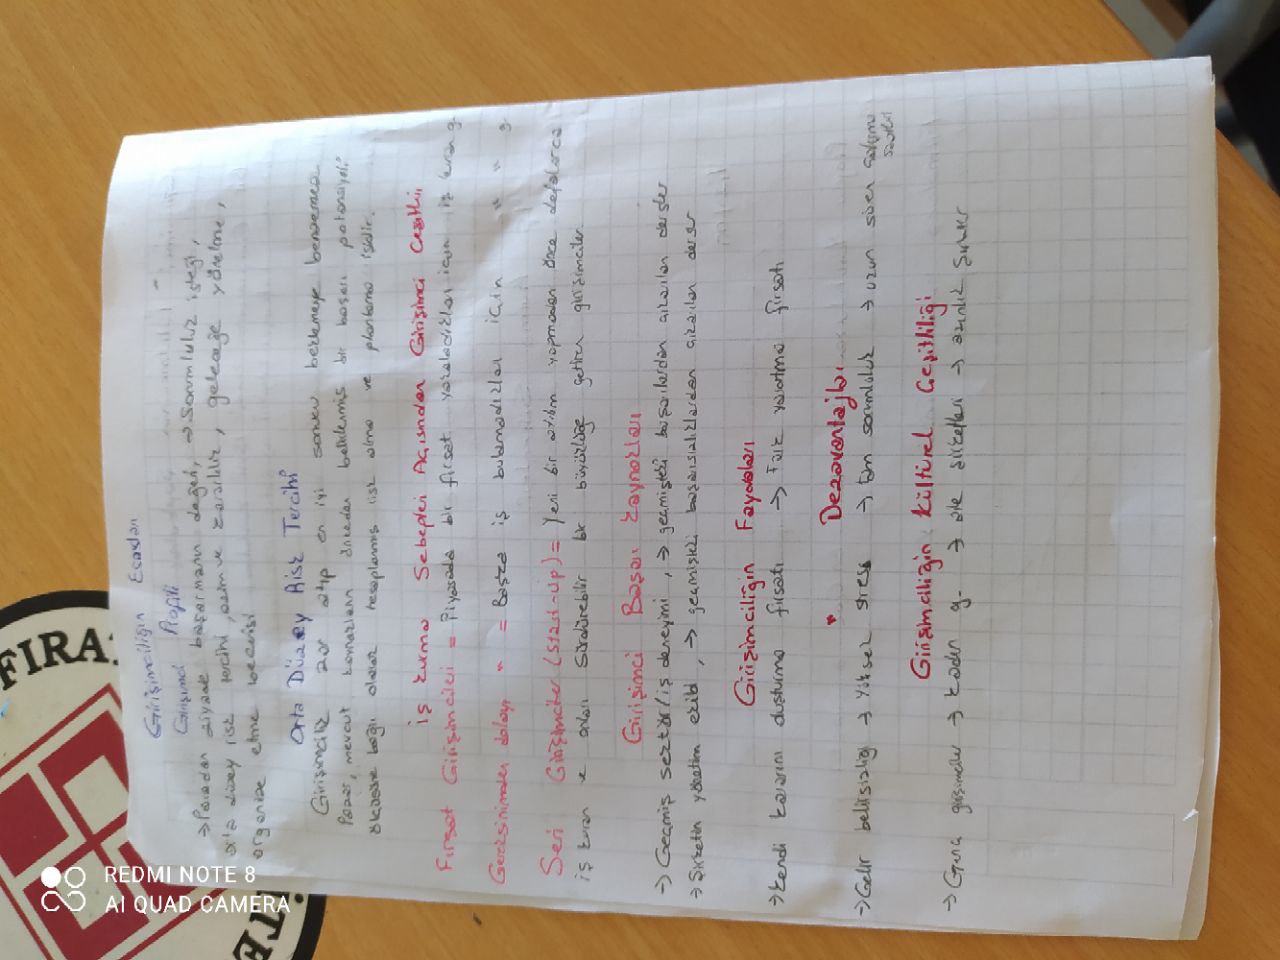 FIRA
İTE
REDMI NOTE 8
AI QUAD CAMERA
Girişimciliğin Esasları
Girişimci Profili
→ Paradan ziyade başarmanın değeri, → Sorumluluk isteği,
orta düzey risk tercihi, azim ve kararlılık, geleceğe yönelme,
organize etme becerisi
Orta Düzey Risk Tercihi
Girişimcilik zar atıp en iyi sonucu beklemeye benzemez
Pazar, mevcut kaynakların önceden belirlenmiş bir başarı potansiyeli
ölçüsüne bağlı olarak hesaplanmış risk alma ve planlama işidir.
İş kurma Sebepleri Açısından Girişimci Çeşitleri
Fırsat Girişimcileri = Piyasada bir fırsat yakaladıkları için iş kuran g.
Gereksinimden dolayı " = Başka iş bulamadıkları için " " g
Seri Girişimciler (Start-Up) = Yeni bir atılım yapmadan önce defalarca
iş kuran ve onları sürdürebilir bir büyüklüğe getiren girişimciler.
Girişimci Başarı Kaynakları
→ Geçmiş sektör/iş deneyimi, → geçmişteki başarılardan çıkarılan dersler
→ Şirketin yönetim ekibi, → geçmişteki başarısızlıklardan çıkarılan dersler
Girişimciliğin Faydaları
→ Kendi kararını fırsatı → Fark yaratma fırsatı
" Dezavantajları
→ Gelir belirsizliği → Yüksek stress → tüm sorumluluk → uzun süren çalışma
saatleri
Girişimciliğin Kültürel Çeşitliliği
→ Genç girişimciler → Kadın g. → aile şirketleri → azınlık